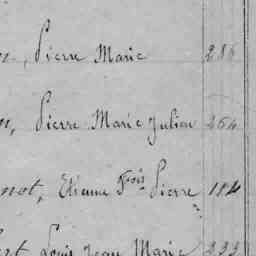 Pierre Marie 286
Pierre Marie Julien 264
not, Etienne Fois Pierre 184
Louis Jean Marie 222